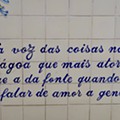 á voz das coisas na
ágoa que mais ator
e a da fonte quando
falar de amor a gen